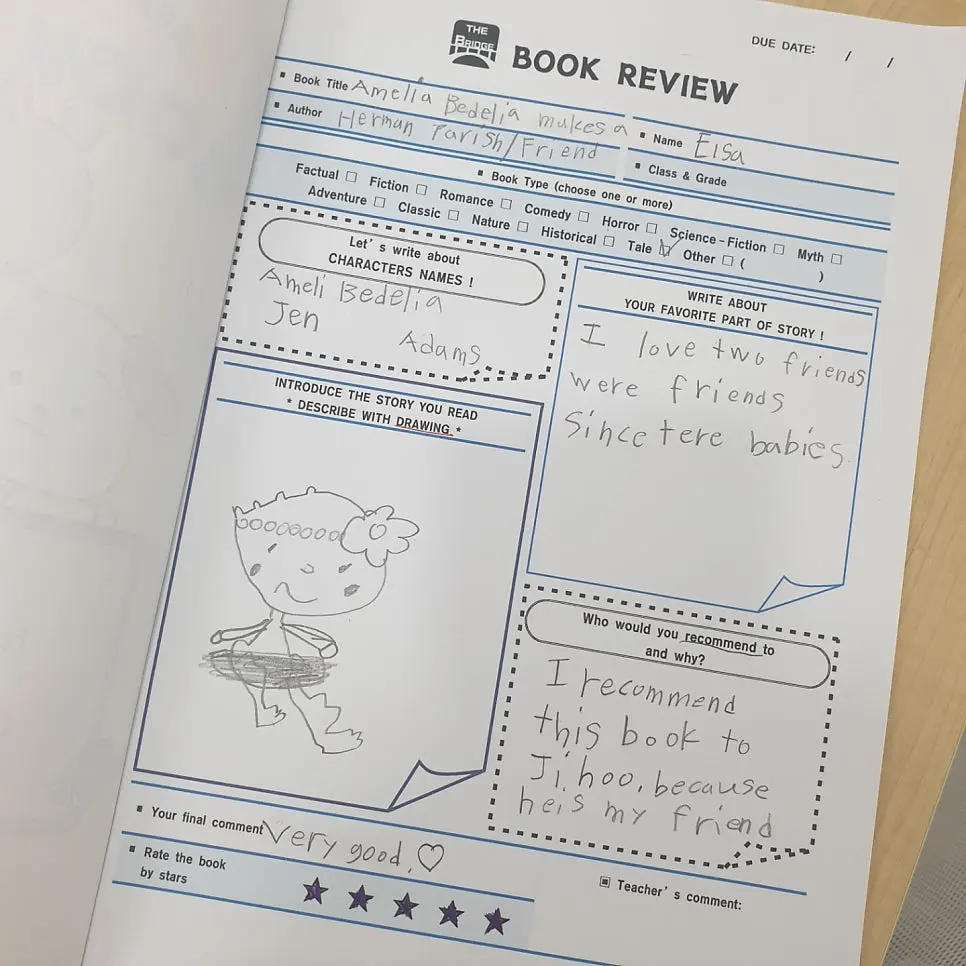 THE
BRIDGE
BOOK REVIEW
DUE DATE: / /
Book Title Amelia Bedelia makes a
Author Herman Parish/Friend
Name Elsa
Class & Grade
Book Type (choose one or more)
Factual □ Fiction □ Romance □ Comedy □ Horror □ Science-Fiction □ Myth □
Adventure □ Classic □ Nature □ Historical □ Tale ☑ Other □ ( )
Let's write about
CHARACTERS NAMES !
Ameli Bedelia
Jen
Adams
WRITE ABOUT
YOUR FAVORITE PART OF STORY !
I love two friends
were friends
Since tere babies.
INTRODUCE THE STORY YOU READ
* DESCRIBE WITH DRAWING *
Who would you recommend to
and why?
I recommend
this book to
Jihoo, because
he is my friend
Your final comment Very good. ♡
Rate the book
by stars
★ ★ ★ ★ ★
Teacher's comment: